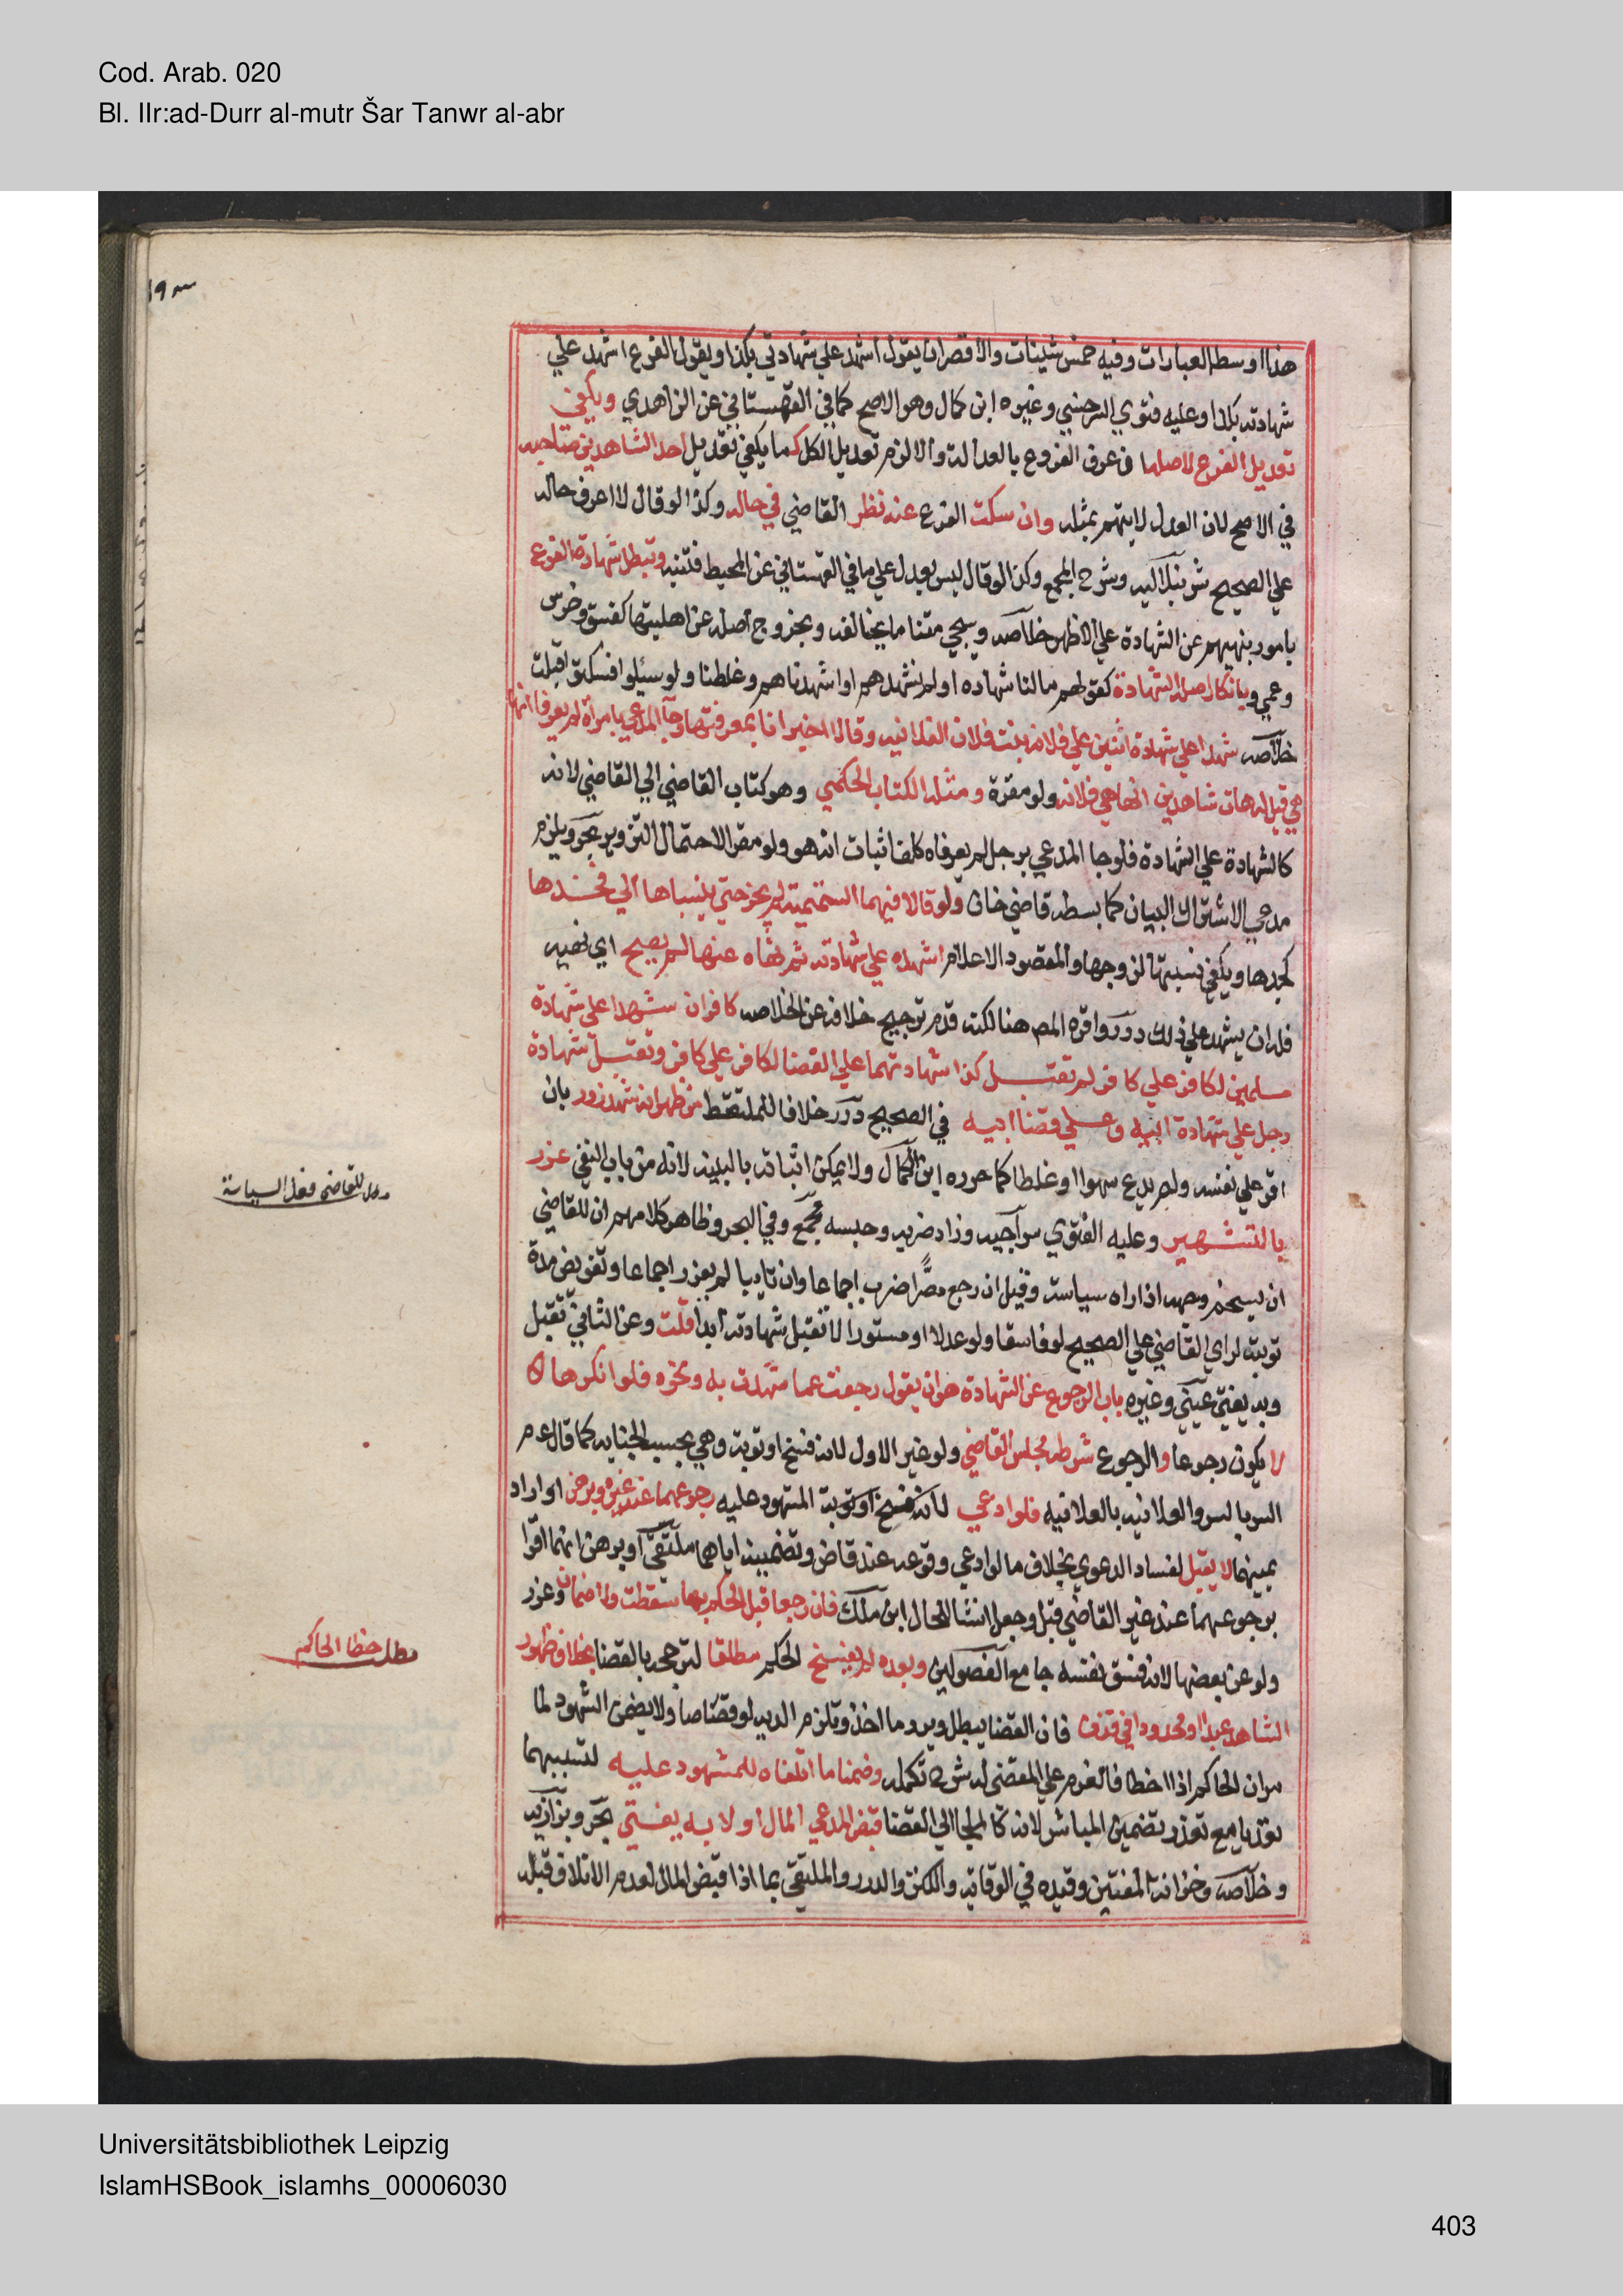 Cod. Arab. 020
Bl. IIr:ad-Durr al-mutr Šar Tanwr al-abr
هذا اوسط العبارات وفيه خمس شينات والاقصر ان يقول اشهد علي شهادتي بكذا ويقول الفرع اشهد علي
شهادته بكذا وعليه فتوي السرخسي وغيره ابن كمال وهو الاصح كما في القهستاني عن الزاهدي ويكفي
تعديل الفرع لاصله ان عرف الفروع بالعدالة والا لزم تعديل الكل كما يكفي تعديل احد الشاهدين صاحبه
في الاصح لان العدل لا يتهم بمثله وان سكت الفرع عنه نظر القاضي في حاله وكذا لو قال لا اعرف حاله
علي الصحيح شرنبلاليه وشرح المجمع وكذا لو قال ليس بعدل علي ما في القهستاني عن المحيط فتنبه وتبطل شهادة الفرع
بامور بنهيهم عن الشهادة علي الاظهر خلاصه وسيجي متنا ما يخالفه وبخروج اصله عن اهليتها كفسق وخرس
وعمي وبانكار اصله الشهادة كقولهم مالنا شهاده او لم نشهدهم او اشهدناهم وغلطنا ولو سئلوا فسكتوا قبلت
خلاصه شهدا علي شهادة اثنين علي فلانه بنت فلان الفلانيه وقالا اخبرانا بمعرفتها وجا المدعي بامراة لم يعرفا انها
هي قيل له هات شاهدين انها هي فلانه ولو مقرة ومثله الكتاب الحكمي وهو كتاب القاضي الي القاضي لانه
كالشهادة علي الشهادة فلو جا المدعي برجل لم يعرفاه كلف اثبات انه هو ولو مقرا لاحتمال التزوير بحر ويلزم
مدعي الاشتراك البيان كما بسطه قاضي خان ولو قالا فيهما التميمية لم يجز حتي ينسباها الي فخذها
كجدها ويكفي نسبتها لزوجها والمقصود الاعلام اشهده علي شهادته ثم نهاه عنها لم يصح اي نهيه
فله ان يشهد علي ذلك درر واقره المص هنا لكنه قدم ترجيح خلافه عن الخلاصه كافران شهدا علي شهادة
مسلمين لكافر علي كافر لم تقبل كذا شهادتهما علي القضا لكافر علي كافر وتقبل شهادة
رجل علي شهادة ابيه وعلي قضا ابيه في الصحيح درر خلافا للملتقط من ظهر انه شهد زور بان
اقر علي نفسه ولم يدع سهوا او غلطا كما حرره ابن الكمال ولا يمكن اثباته بالبينه لانه من باب النفي عزر
بالتشهير وعليه الفتوي سراجيه وزاد ضربه وحبسه مجمع وفي البحر وظاهر كلامهم ان للقاضي
ان يسخم وجهه اذا راه سياسة وقيل ان رجع مصرا ضرب اجماعا وان تايبا لم يعزر اجماعا وتفويض مدة
توبته لراي القاضي علي الصحيح لو فاسقا ولو عدلا او مستورا لا تقبل شهادته ابدا قلت وعن الثاني تقبل
وبه يفتي عيني وغيره باب الرجوع عن الشهادة هو ان يقول رجعت عما شهدت به ونحوه فلو انكرها لا
لا يكون رجوعا والرجوع شرطه مجلس القاضي ولو غير الاول لانه فسخ او توبة وهي بحسب الجنايه كما قال عم
السر بالسر والعلانيه بالعلانيه فلو ادعي لانه فسخ او توبة المشهود عليه رجوعهما عند غيره وبرهن او اراد
يمينهما لا يقبل لفساد الدعوي بخلاف ما لو ادعي وقوعه عند قاض وتضمينه اياهما ملتقي او برهن انهما اقرا
برجوعهما عند غير القاضي قبل وجعل انشا للحال ابن ملك فان رجعا قبل الحكم بها سقطت ولا ضمان وعزر
ولو عن بعضها لانه فسق نفسه جامع الفصولين وبعده لم يفسخ الحكم مطلقا لترجحه بالقضا بخلاف ظهور
الشاهد عبدا او محدودا في قذف فان القضا يبطل ويرد ما اخذ وتلزم الديه لو قصاصا ولا يضمن الشهود لما
مر ان الحاكم اذا اخطا فالغرم علي المقضي له ش ٢ تكمله وضمنا ما اتلفاه للمشهود عليه لتسببهما
تعديا مع تعذر تضمين المباشر لانه كالملجا الي القضا قبض المدعي المال او لا به يفتي بحر وبزازيه
وخلاصه وخزانة المفتين وقيده في الوقاية والكنز والدرر والملتقي بما اذا قبض المال لعدم الاتلاف قبله
للقاضي فعل السياسة
مطلب خطا الحاكم
Universitätsbibliothek Leipzig
IslamHSBook_islamhs_00006030
403